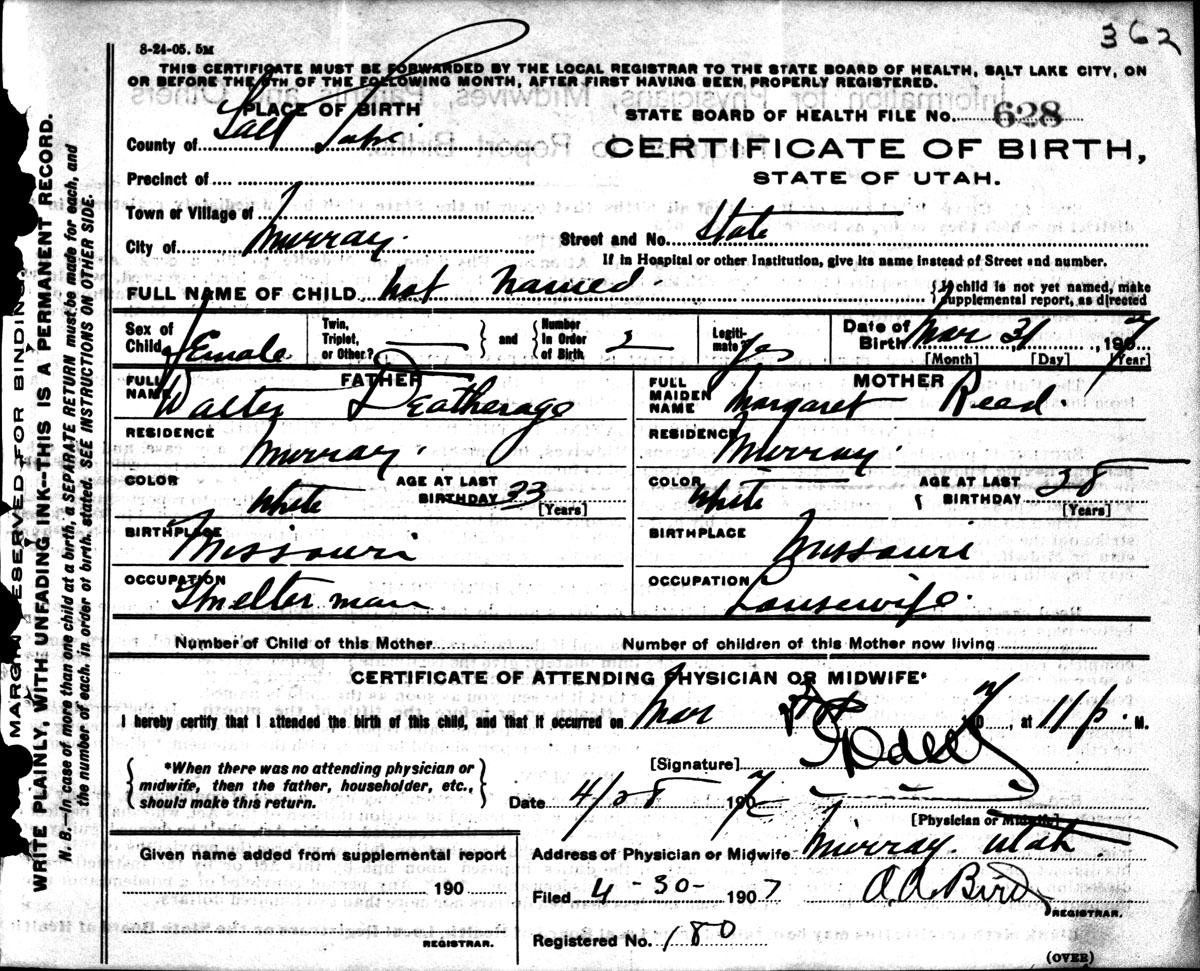 362
8-24-05. 5M
THIS CERTIFICATE MUST BE FORWARDED BY THE LOCAL REGISTRAR TO THE STATE BOARD OF HEALTH, SALT LAKE CITY, ON
OR BEFORE THE 5TH OF THE FOLLOWING MONTH, AFTER FIRST HAVING BEEN PROPERLY REGISTERED.
PLACE OF BIRTH
STATE BOARD OF HEALTH FILE No. 628
County of Salt Lake
CERTIFICATE OF BIRTH,
STATE OF UTAH.
Precinct of
Town or Village of
City of Murray.
Street and No. State
If in Hospital or other Institution, give its name instead of Street and number.
FULL NAME OF CHILD not named.
{If child is not yet named, make
supplemental report, as directed
Sex of Child Female
Twin, Triplet, or Other?
and
Number in Order of Birth 2
Legitimate? Yes
Date of Birth Mar 31, 1907
[Month] [Day] [Year]
FATHER
FULL NAME Walter Deatherage
MOTHER
FULL MAIDEN NAME Margaret Reed
RESIDENCE Murray.
RESIDENCE Murray.
COLOR White
AGE AT LAST BIRTHDAY 33 [Years]
COLOR White
AGE AT LAST BIRTHDAY 38 [Years]
BIRTHPLACE Missouri
BIRTHPLACE Missouri
OCCUPATION Smelter man
OCCUPATION Housewife.
Number of Child of this Mother
Number of children of this Mother now living
CERTIFICATE OF ATTENDING PHYSICIAN OR MIDWIFE*
I hereby certify that I attended the birth of this child, and that it occurred on Mar 190 7, at 11 P. M.
*When there was no attending physician or
midwife, then the father, householder, etc.,
should make this return.
[Signature]
Date 4/28 1907
[Physician or Midwife]
Given name added from supplemental report
190
REGISTRAR.
Address of Physician or Midwife Murray. Utah.
Filed 4-30- 1907 A A Bird
REGISTRAR.
Registered No. 180
(OVER)
MARGIN RESERVED FOR BINDING.
WRITE PLAINLY, WITH UNFADING INK--THIS IS A PERMANENT RECORD.
N. B.--In case of more than one child at a birth, a SEPARATE RETURN must be made for each, and
the number of each, in order of birth, stated. SEE INSTRUCTIONS ON OTHER SIDE.